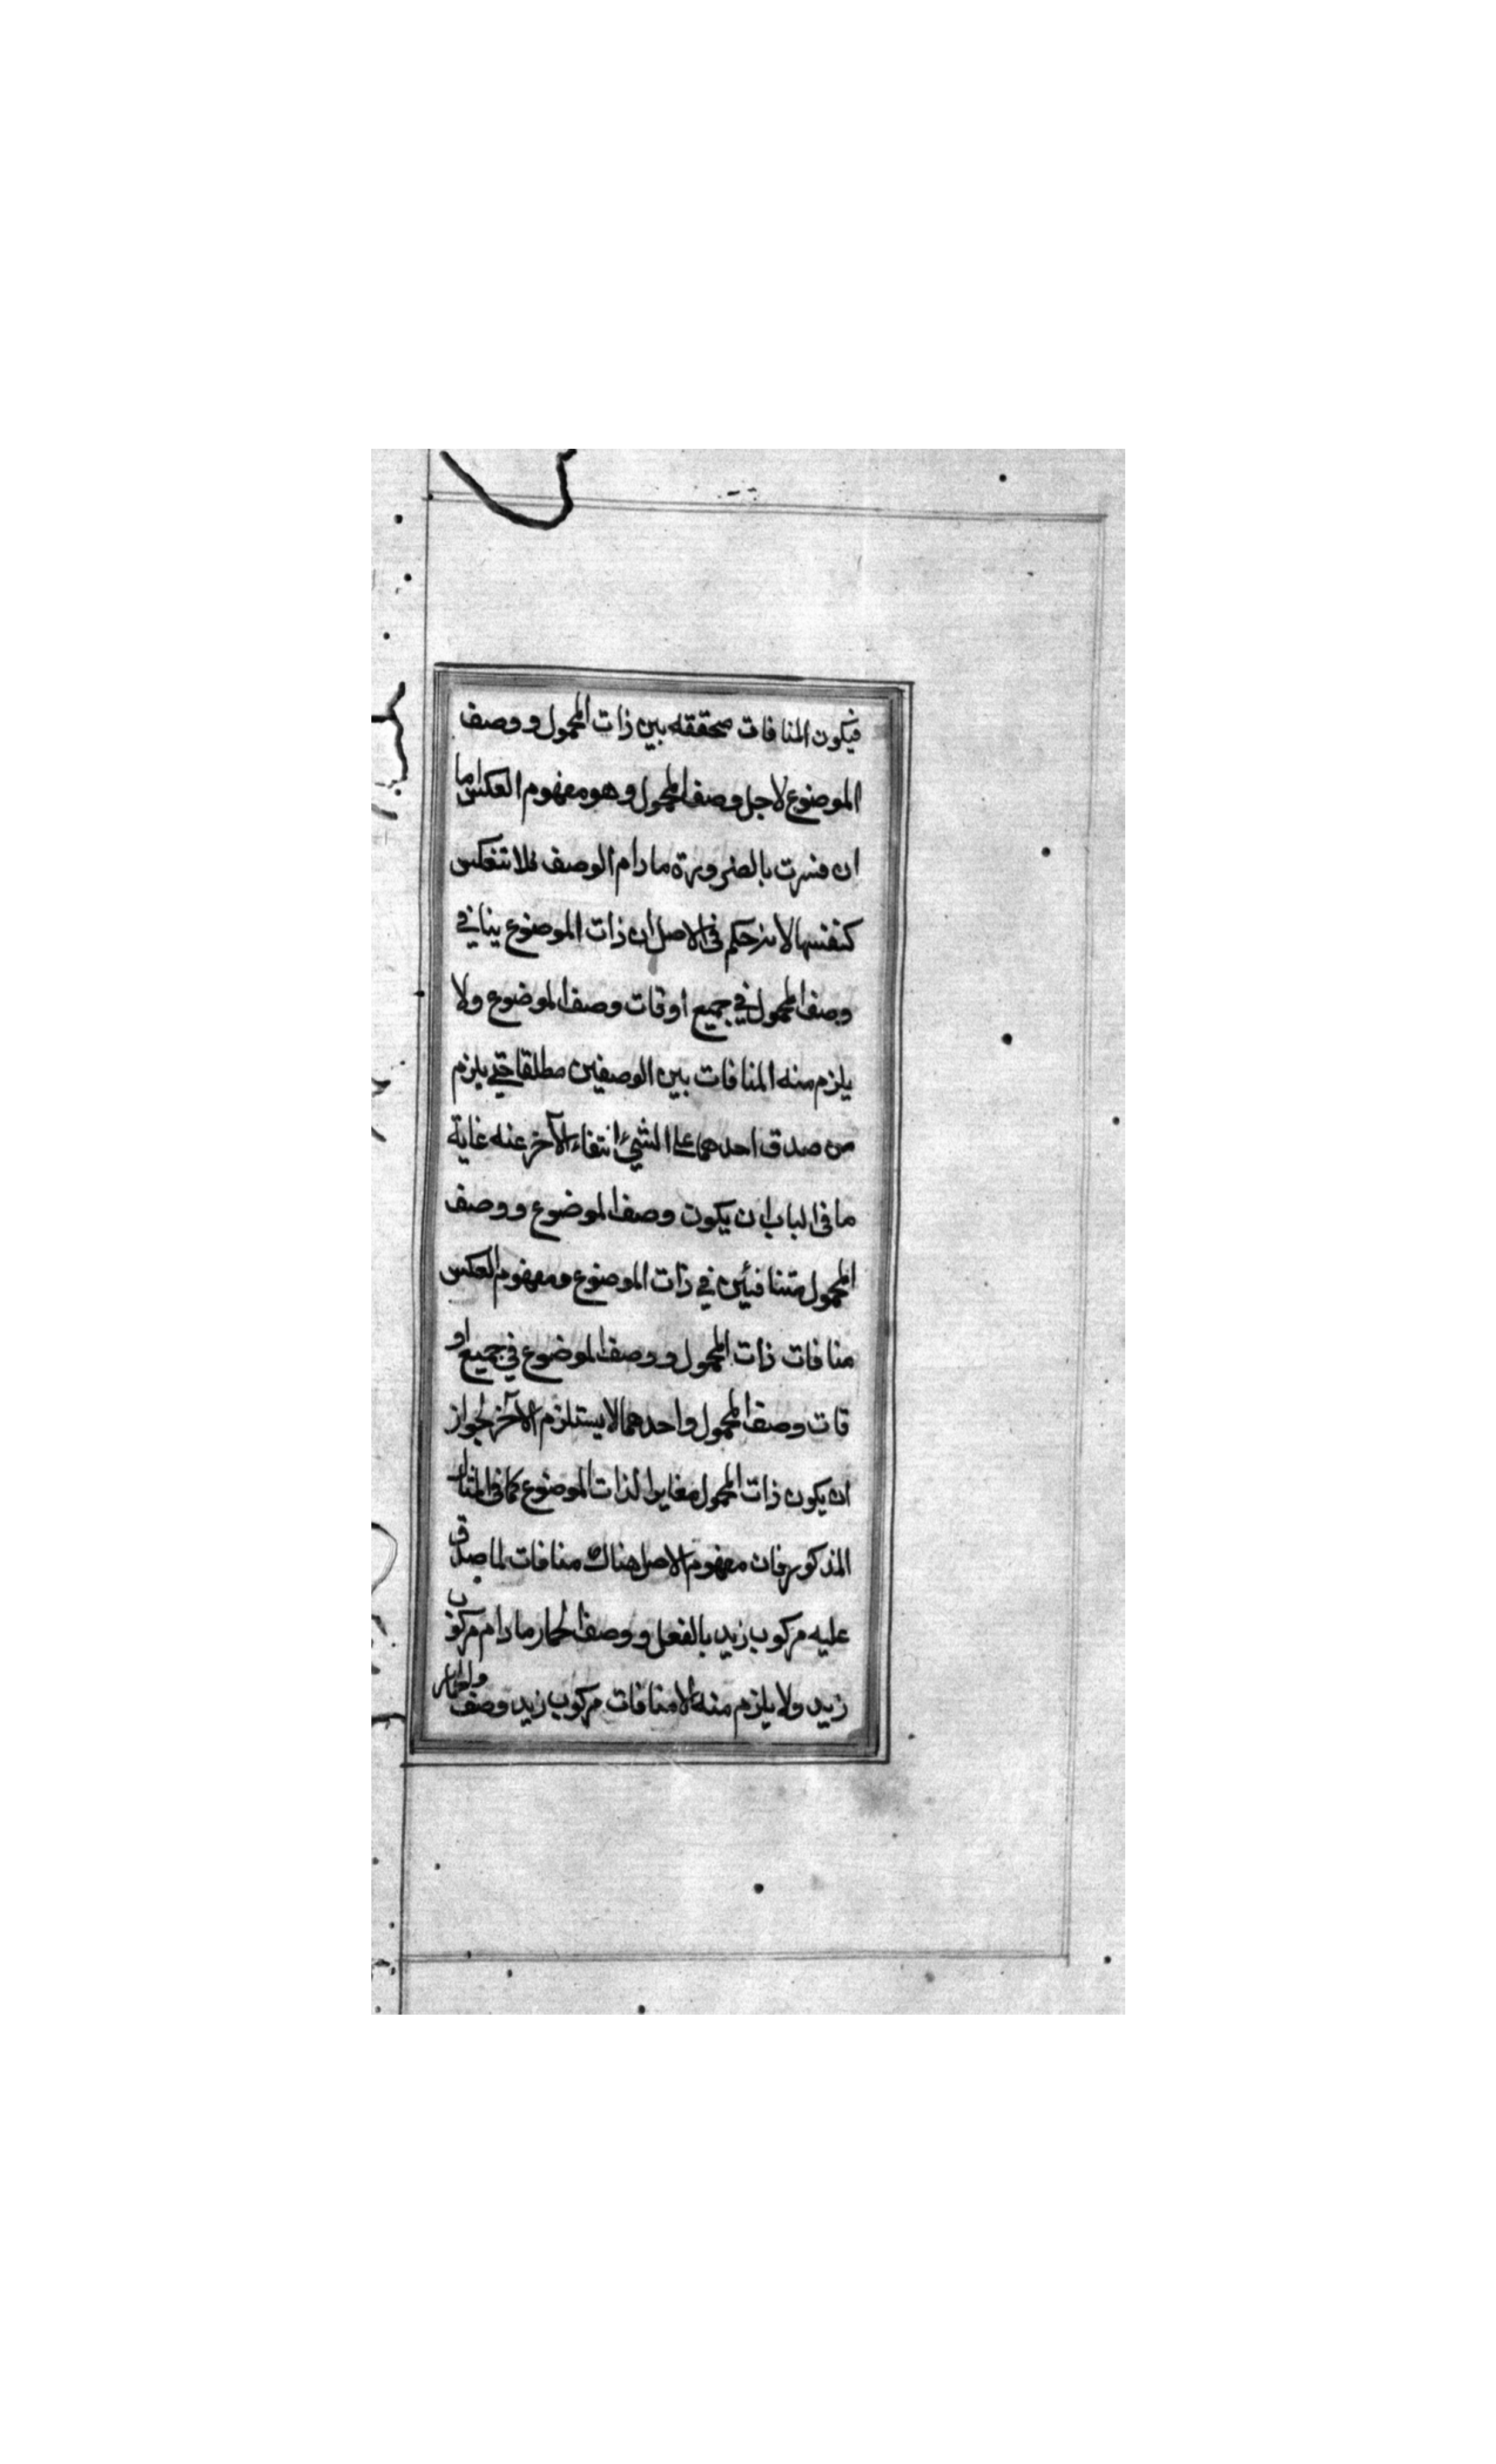 فيكون المنافات متحققه بين ذات المحمول ووصف
الموضوع لاجل وصف المحمول وهو مفهوم العكس اما
ان فسرت بالضرورة مادام الوصف فلا تنعكس
كنفسها لانه حكم فى الاصل ان ذات الموضوع ينافي
وصف المحمول في جميع أوقات وصف الموضوع ولا
يلزم منه المنافات بين الوصفين مطلقا حتي يلزم
من صدق احدهما علي الشيء انتفاء الآخر عنه غاية
ما فى الباب ان يكون وصف الموضوع ووصف
المحمول متنافيئين في ذات الموضوع ومفهوم العكس
منافات ذات المحمول ووصف الموضوع في جميع او
قات وصف المحمول واحدهما لا يستلزم الآخر لجواز
ان يكون ذات المحمول مغايرا لذات الموضوع كما فى المثال
المذكور فان مفهوم الاصل هناك منافات لما صدق
عليه مركوب زيد بالفعل ووصف الحمار مادام مركوب
زيد ولا يلزم منه الا منافات مركوب زيد وصف والحمار